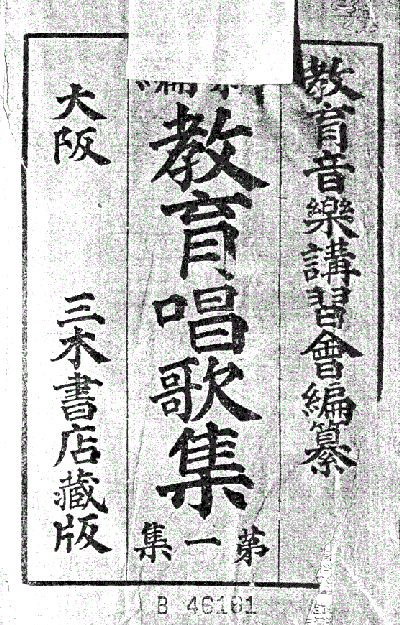 教育音樂講習會編纂
教育唱歌集
第一集
大阪 三木書店藏版
B 46101